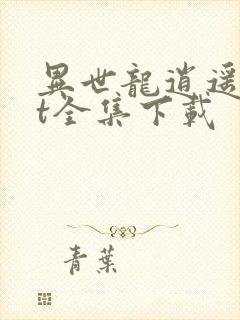 異世龍逍遥
t全集下載
青葉